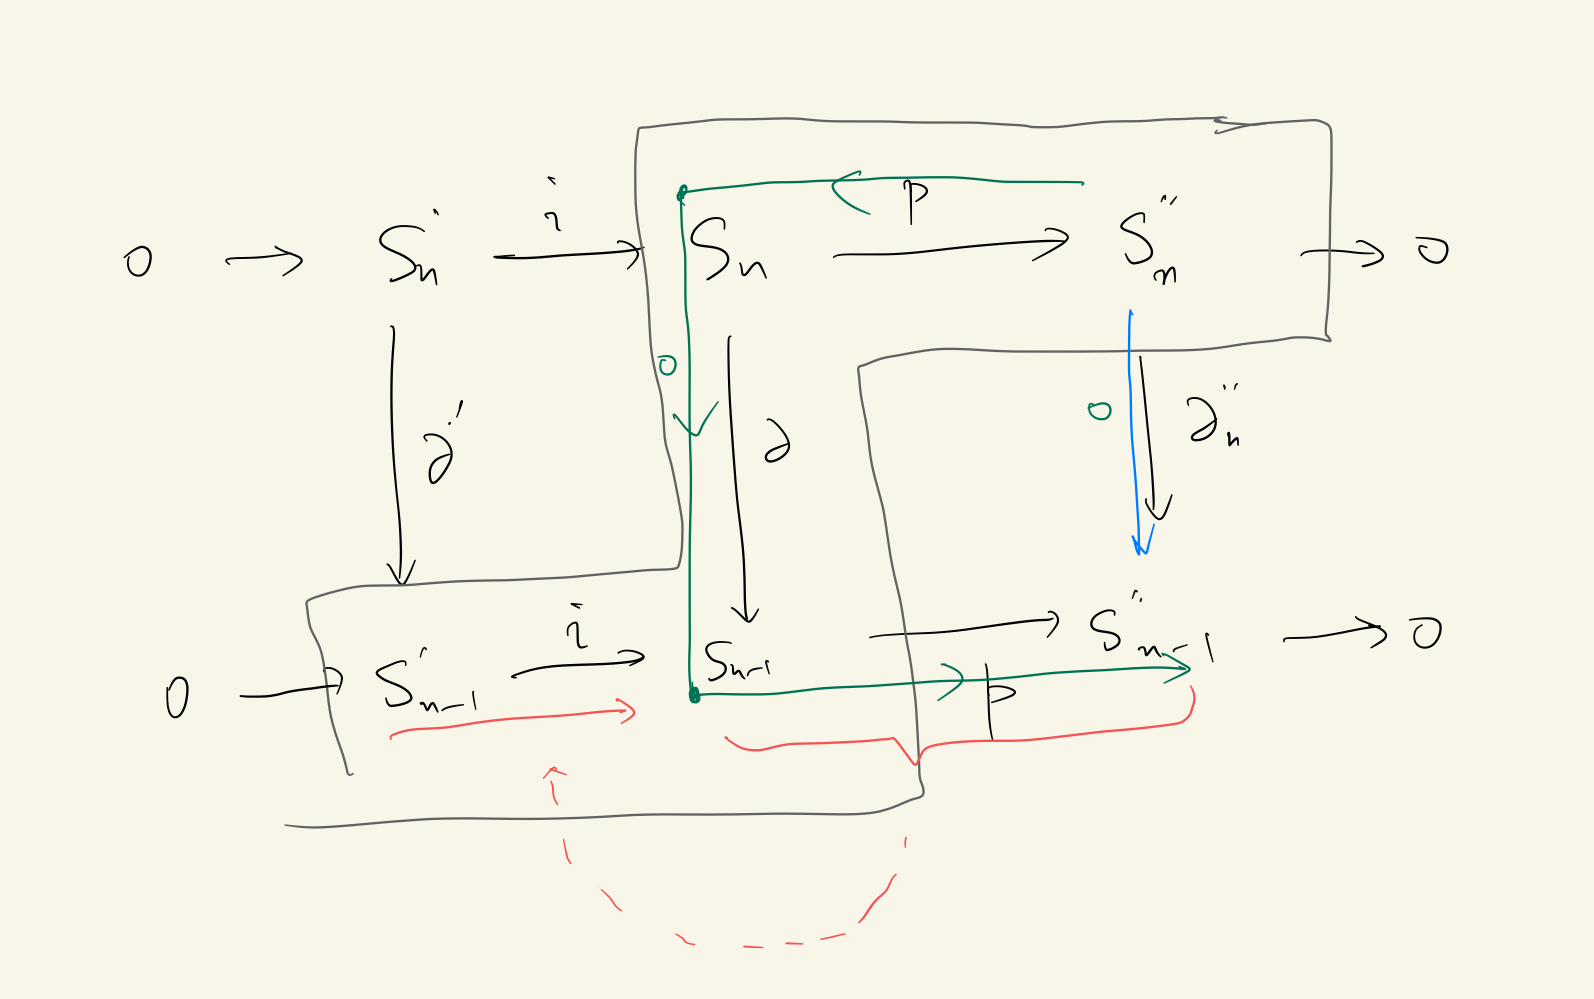 0 → S'ₙ i → Sₙ p → S''ₙ → 0
∂' 0 ∂ 0 ∂''ₙ
0 → S'ₙ₋₁ i → Sₙ₋₁ → p S''ₙ₋₁ → 0